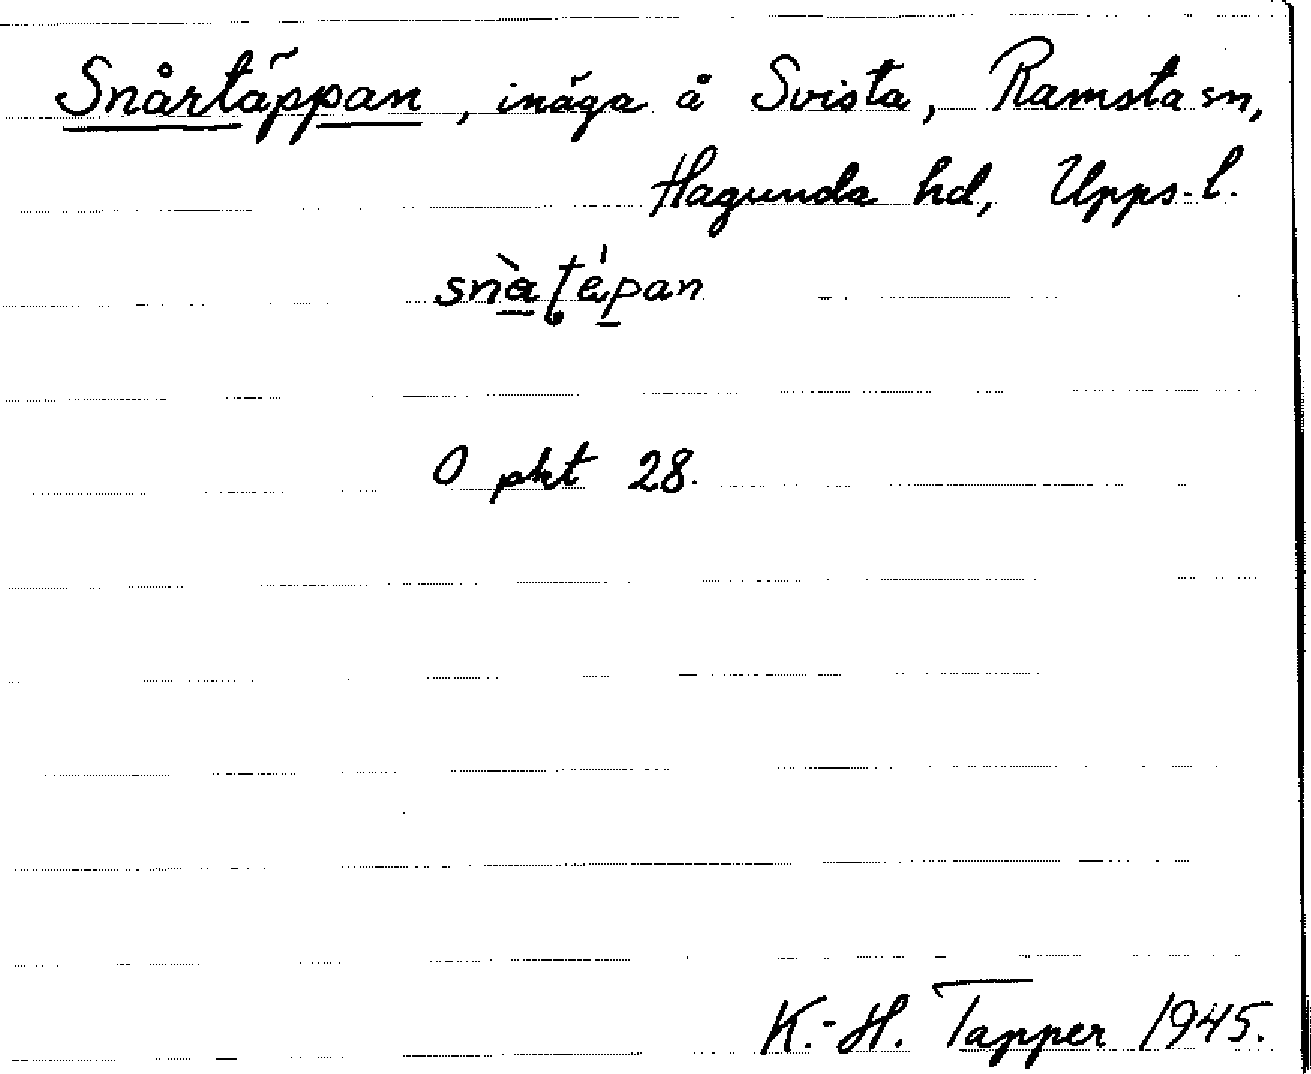 Snårtäppan, inäga å Svista, Ramsta sn,
Hagunda hd, Upps. l.
snàʈépan
O pkt 28.
K.-H. Tapper 1945.